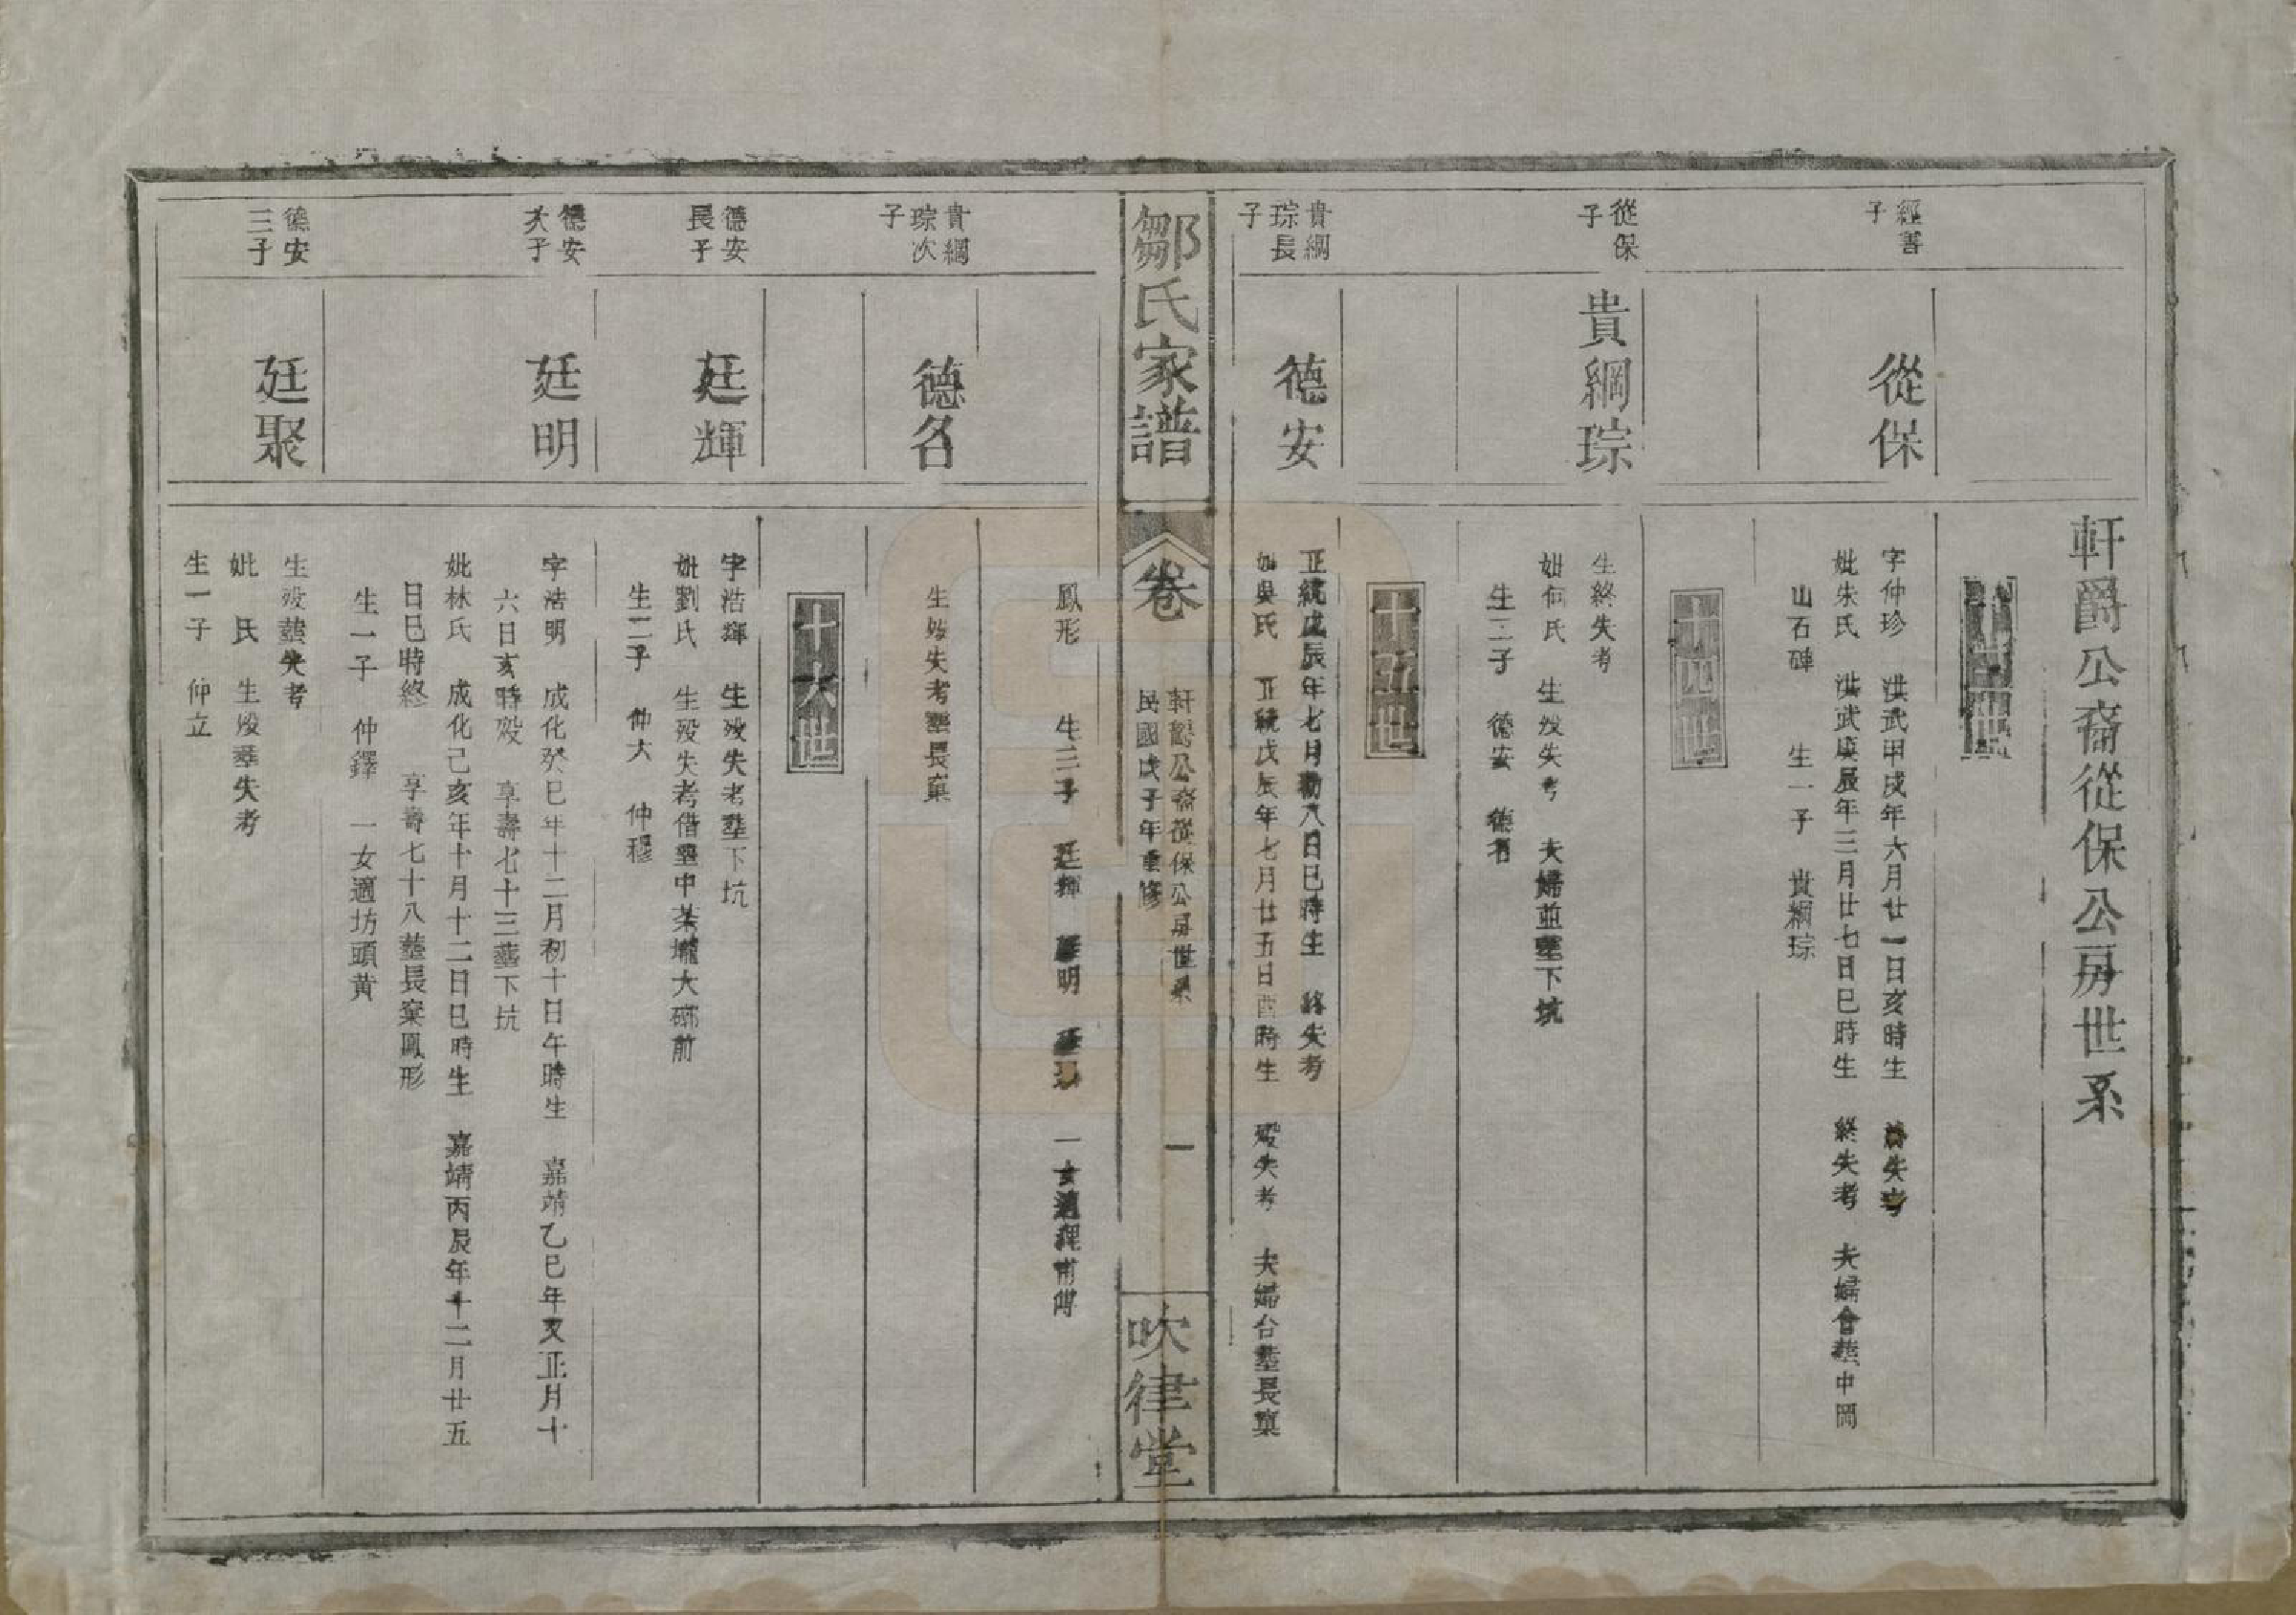 軒爵公裔從保公房世系
十三世
經善
子
從保
字仲珍 洪武甲戌年六月廿一日亥時生 終失考
妣朱氏 洪武庚辰年三月廿七日巳時生 終失考 夫婦合塟中岡
山石碑 生一子 貴綱琮
十四世
從保
子
貴綱琮
生終失考
妣何氏 生歿失考 夫婦並塟下坑
生二子 德安 德名
十五世
貴綱
琮長
子
德安
正統戊辰年七月初八日巳時生 終失考
妣吳氏 正統戊辰年七月廿五日酉時生 歿失考 夫婦合塟長窠
鄒氏家譜
卷
軒爵公裔從保公房世系
民國戊子年重修
一
吹律堂
鳳形 生三子 廷輝 廷明 廷聚 一女適裡甫傅
貴綱
琮次
子
德名
生歿失考塟長窠
十六世
德安
長子
廷輝
字浩輝 生歿失考塟下坑
妣劉氏 生歿失考借塟中茶壠大磜前
生二子 仲大 仲穆
德安
次子
廷明
字浩明 成化癸巳年十二月初十日午時生 嘉靖乙巳年又正月十
六日亥時歿 享壽七十三塟下坑
妣林氏 成化己亥年十月十二日巳時生 嘉靖丙辰年十二月廿五
日巳時終 享壽七十八塟長窠鳳形
生一子 仲鐸 一女適坊頭黄
德安
三子
廷聚
生歿塟失考
妣 氏 生歿塟失考
生一子 仲立